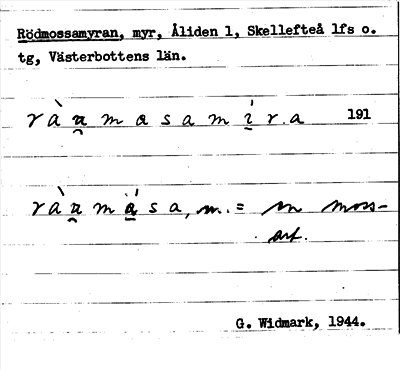 Rödmossamyran, myr, Åliden 1, Skellefteå lfs o.
tg, Västerbottens län.
ràu̯mosamír.a 191
ràu̯mɷ̀sa, m. = en moss-
art.
G. Widmark, 1944.